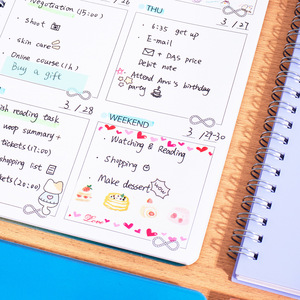 Negotiation (15:00)
Shoot
skin care
Online course (1h)
Buy a gift
THU
3/27
6:35 get up
E-mail
+ DAs price
Debit note
Attend Ann's birthday
party
3/28
reading task
summary +
tickets (17:00)
shopping list
tickets (20:00)
3/29-30
WEEKEND
Watching & Reading
Shopping
Make dessert